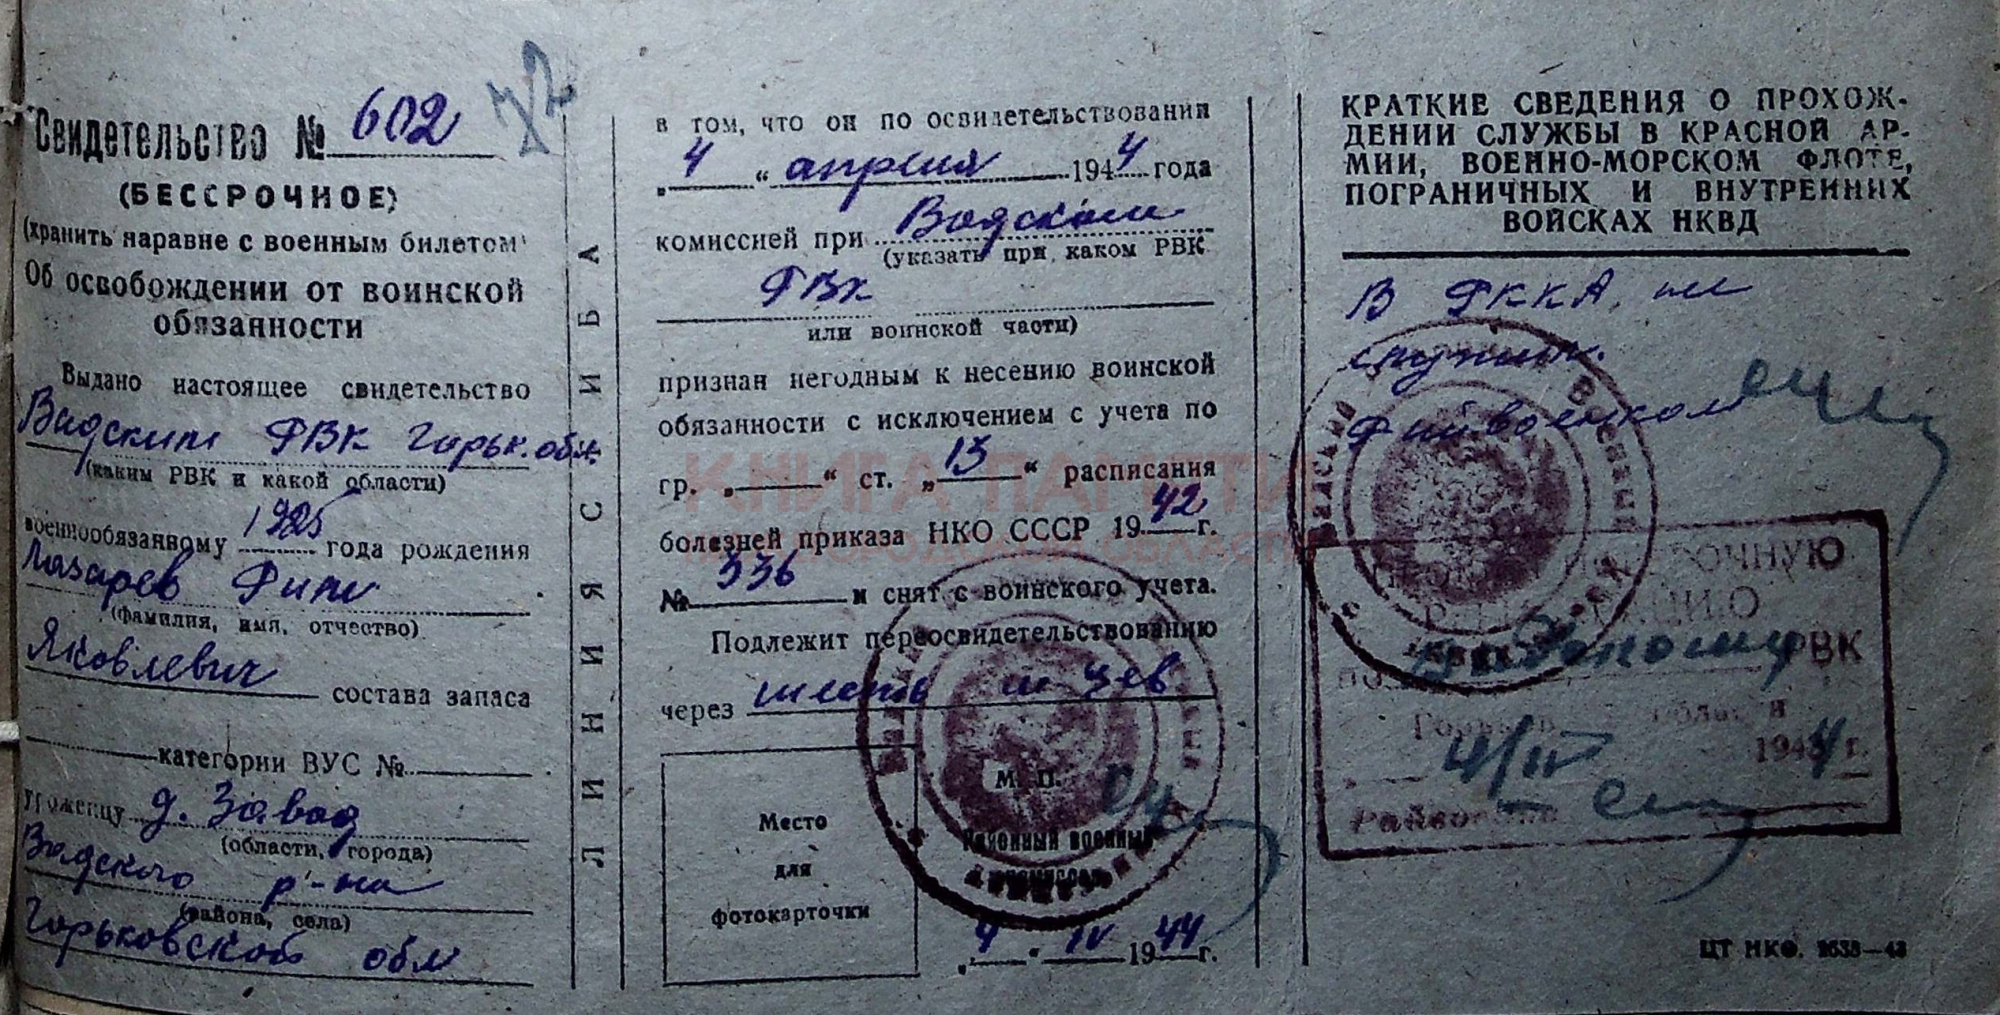 Свидетельство № 602
(БЕССРОЧНОЕ)
(хранить наравне с военным билетом)
Об освобождении от воинской
обязанности
Выдано настоящее свидетельство
Вадским РВК Горьк. обл.
(каким РВК и какой области)
военнообязанному 1925 года рождения
Лазарев
(фамилия, имя, отчество)
Яковлевич состава запаса
категории ВУС №
Уроженцу д. Завод
(области, города)
Вадского р-на
(района, села)
Горьковской обл
ЛИНИЯ СГИБА
в том, что он по освидетельствовании
„4“ апреля 1944 года
комиссией при Вадском
(указать при каком РВК
РВК
или воинской части)
признан негодным к несению воинской
обязанности с исключением с учета по
гр. „ “ ст. „13“ расписания
болезней приказа НКО СССР 1942 г.
№ 336 и снят с воинского учета.
Подлежит переосвидетельствованию
через шесть м-цев
М. П.
Районный военный
комиссар
Место
для
фотокарточки
„4“ IV 1944 г.
КРАТКИЕ СВЕДЕНИЯ О ПРОХОЖ-
ДЕНИИ СЛУЖБЫ В КРАСНОЙ АР-
МИИ, ВОЕННО-МОРСКОМ ФЛОТЕ,
ПОГРАНИЧНЫХ И ВНУТРЕННИХ
ВОЙСКАХ НКВД
В РККА не
служил.
Райвоенком
РВК
Горьковской области
4/IV 1944 г.
Райвоенком
ЦТ НКО.
КНИГА ПАМЯТИ